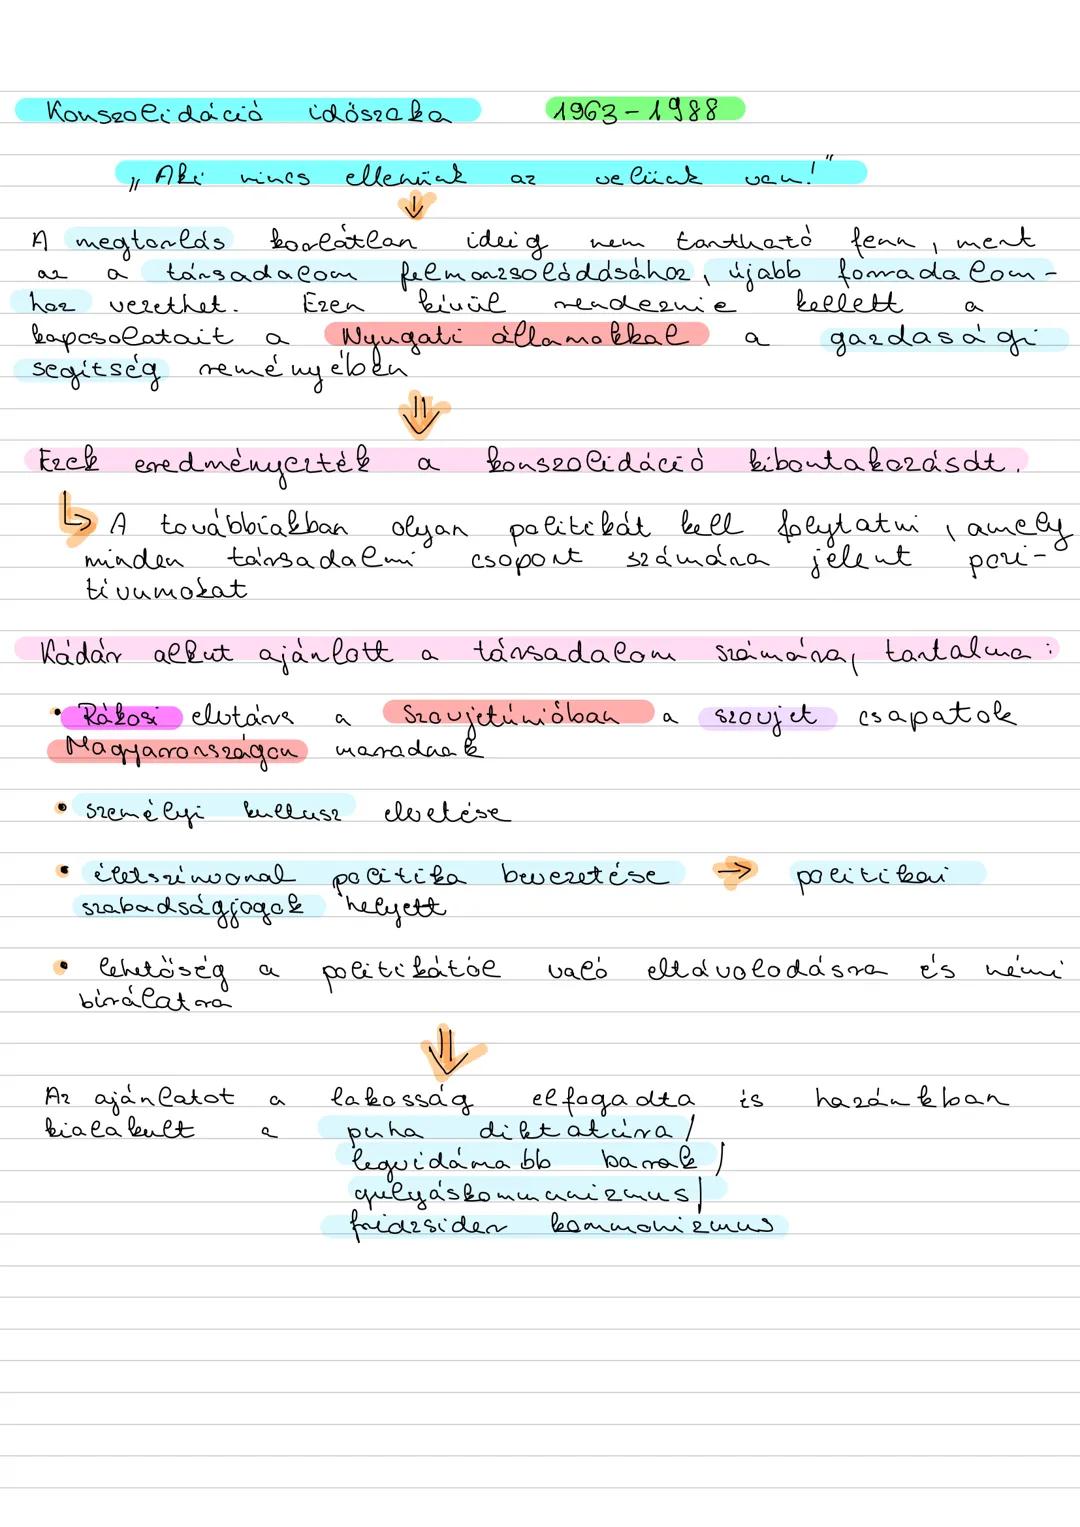 Konszolidáció időszaka 1963-1988
„Aki nincs ellenünk az velünk van!"
↓
A megtorlás korlátlan ideig nem tartható fenn, mert
az a társadalom felmorzsolódásához, újabb forradalom-
hoz vezethet. Ezen kívül rendeznie kellett a
kapcsolatait a Nyugati államokkal a gazdasági
segítség reményében
⇓
Ezek eredményezték a konszolidáció kibontakozását.
↳ A továbbiakban olyan politikát kell folytatni, amely
minden társadalmi csoport számára jelent pozi-
tívumokat
Kádár alkut ajánlott a társadalom számára, tartalma:
• Rákosi elvtárs a Szovjetúnióban a szovjet csapatok
Magyarországon maradnak
• személyi kultusz elvetése
• életszínvonal politika bevezetése → politikai
szabadságjogok helyett
• lehetőség a politikától való eltávolodásra és némi
bírálatra
⇓
Az ajánlatot a lakosság elfogadta és hazánkban
kialakult a puha diktatúra/
legvidámabb barak/
gulyáskommunizmus/
fridzsider kommonizmus